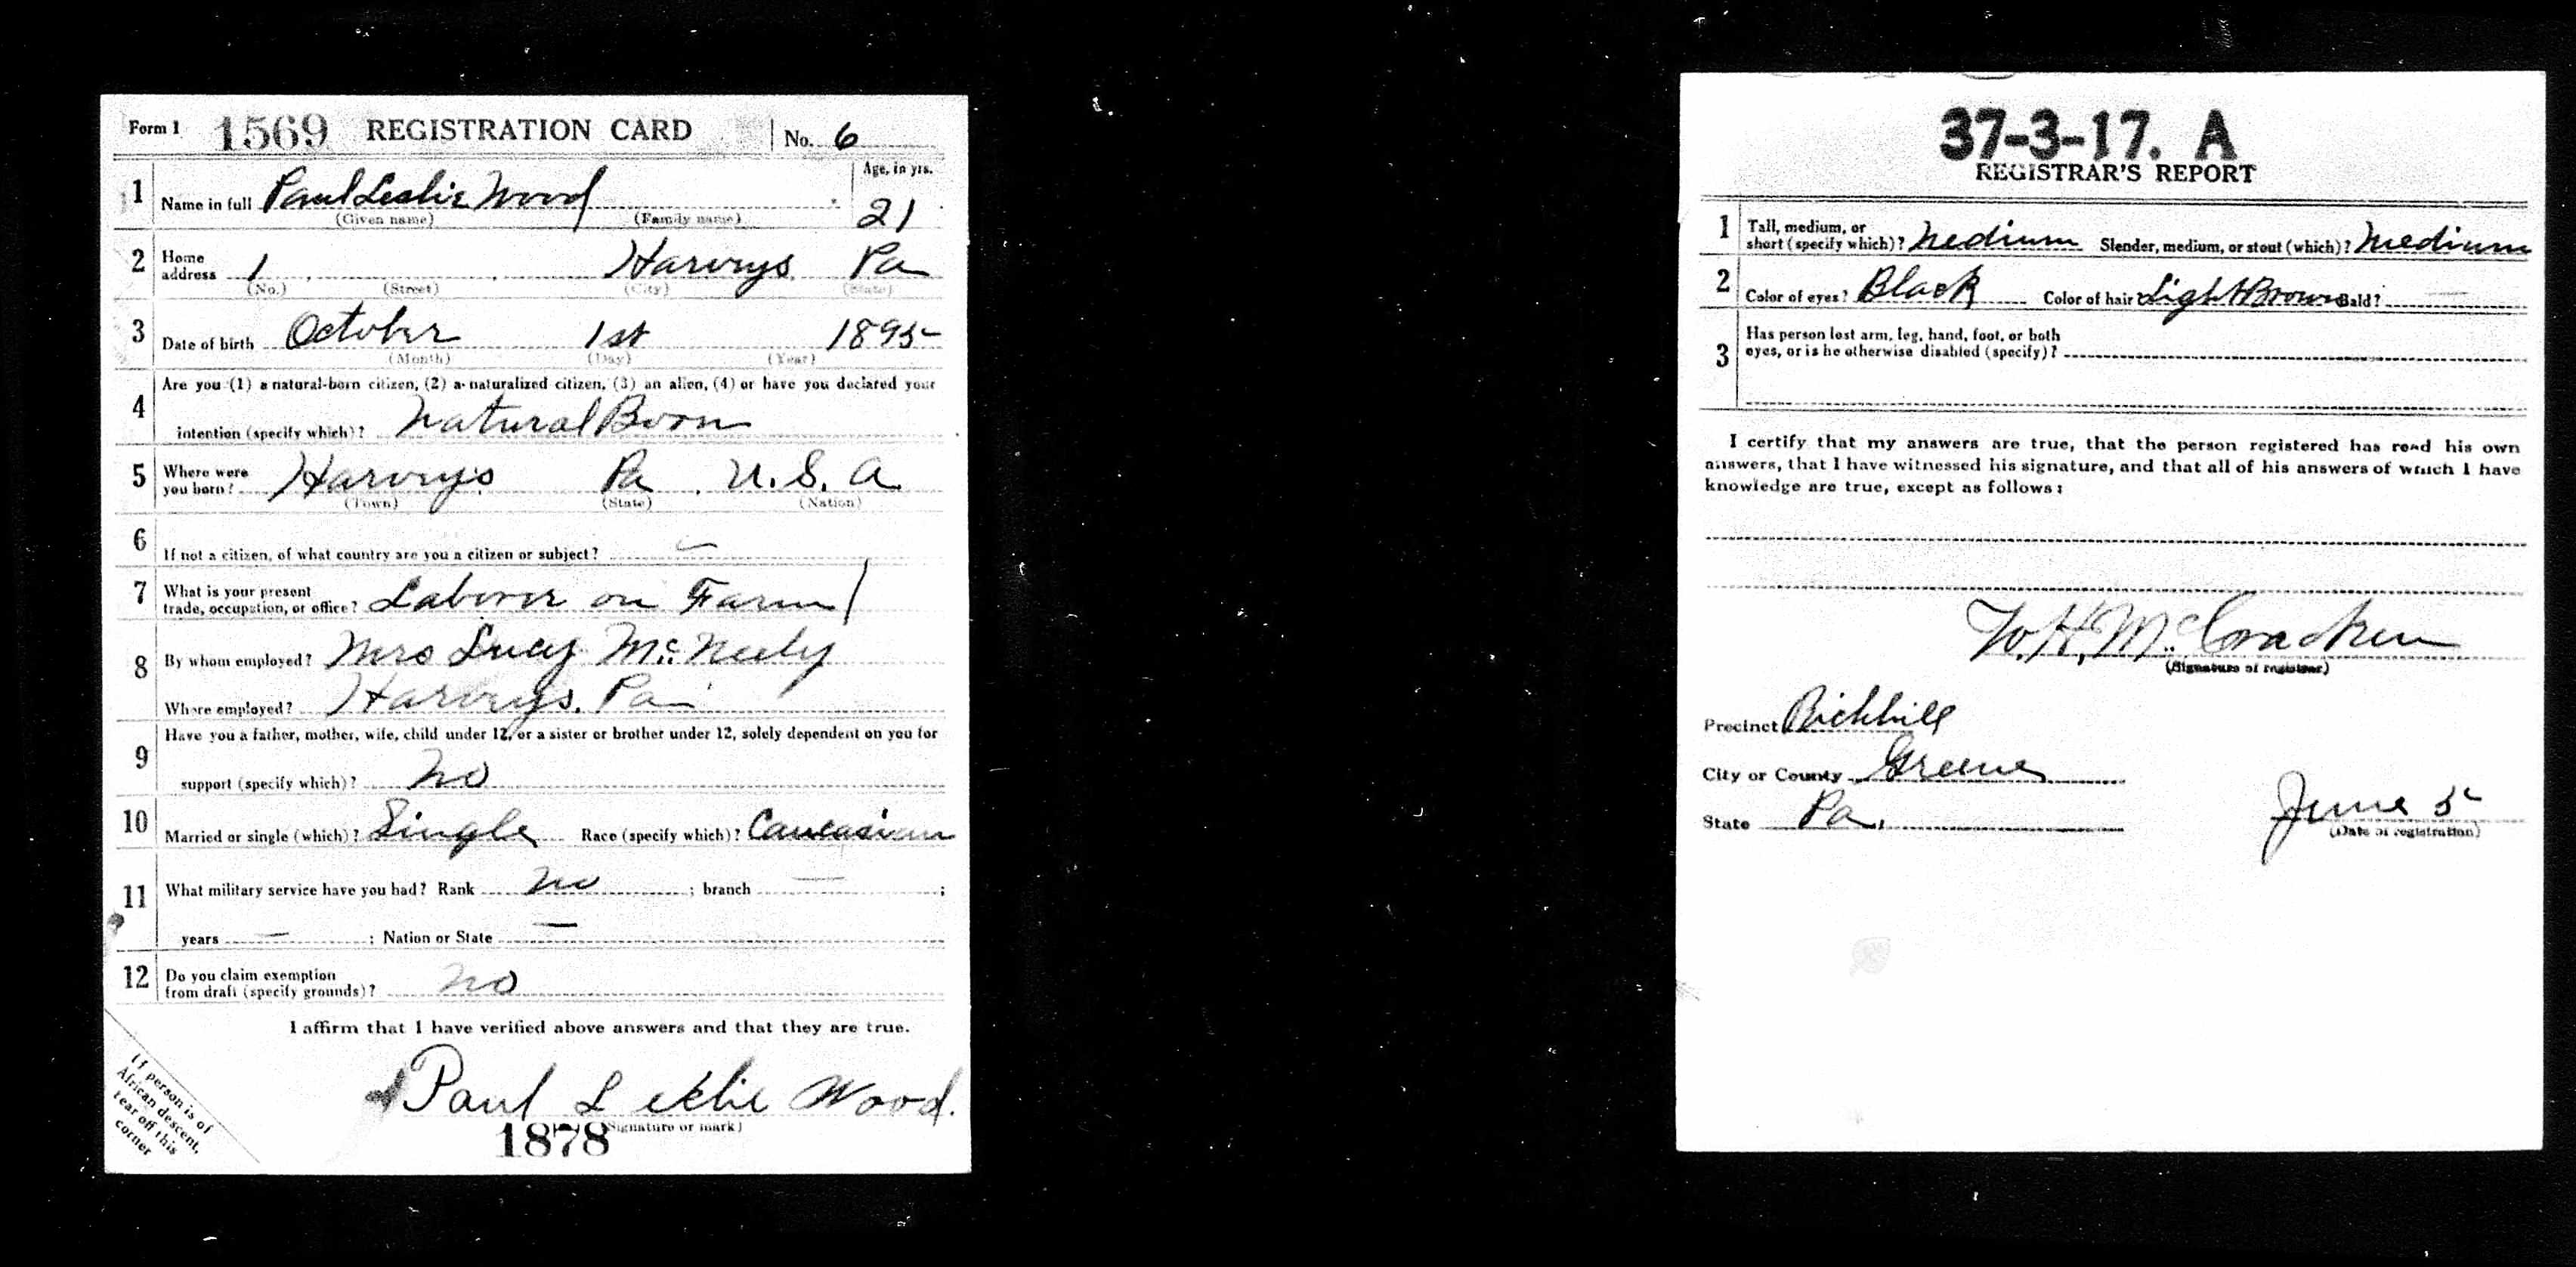 Form 1 1569 REGISTRATION CARD No. 6
1 Name in full Paul Leslie Wood Age, in yrs.
(Given name) (Family name) 21
2 Home address 1 Harvys Pa
(No.) (Street) (City) (State)
3 Date of birth October 1st 1895
(Month) (Day) (Year)
Are you (1) a natural-born citizen, (2) a naturalized citizen, (3) an alien, (4) or have you declared your
4 intention (specify which)? Natural Born
5 Where were you born? Harvys Pa. U.S.A.
(Town) (State) (Nation)
6 If not a citizen, of what country are you a citizen or subject? —
7 What is your present trade, occupation, or office? Laborer on Farm
8 By whom employed? Mrs Lucy McNeely
Where employed? Harvys. Pa
Have you a father, mother, wife, child under 12, or a sister or brother under 12, solely dependent on you for
9 support (specify which)? No
10 Married or single (which)? Single Race (specify which)? Caucasian
11 What military service have you had? Rank No ; branch — ;
years — ; Nation or State —
12 Do you claim exemption from draft (specify grounds)? No
I affirm that I have verified above answers and that they are true.
Paul Leslie Wood.
1878 (Signature or mark)
If person is of
African descent,
tear off this
corner
37-3-17. A
REGISTRAR'S REPORT
1 Tall, medium, or short (specify which)? Medium Slender, medium, or stout (which)? Medium
2 Color of eyes? Black Color of hair Light Brown Bald? —
Has person lost arm, leg, hand, foot, or both
3 eyes, or is he otherwise disabled (specify)?
I certify that my answers are true, that the person registered has read his own
answers, that I have witnessed his signature, and that all of his answers of which I have
knowledge are true, except as follows:
W.H. McCracken
(Signature of registrar)
Precinct Richhill
City or County Greene
State Pa. June 5
(Date of registration)